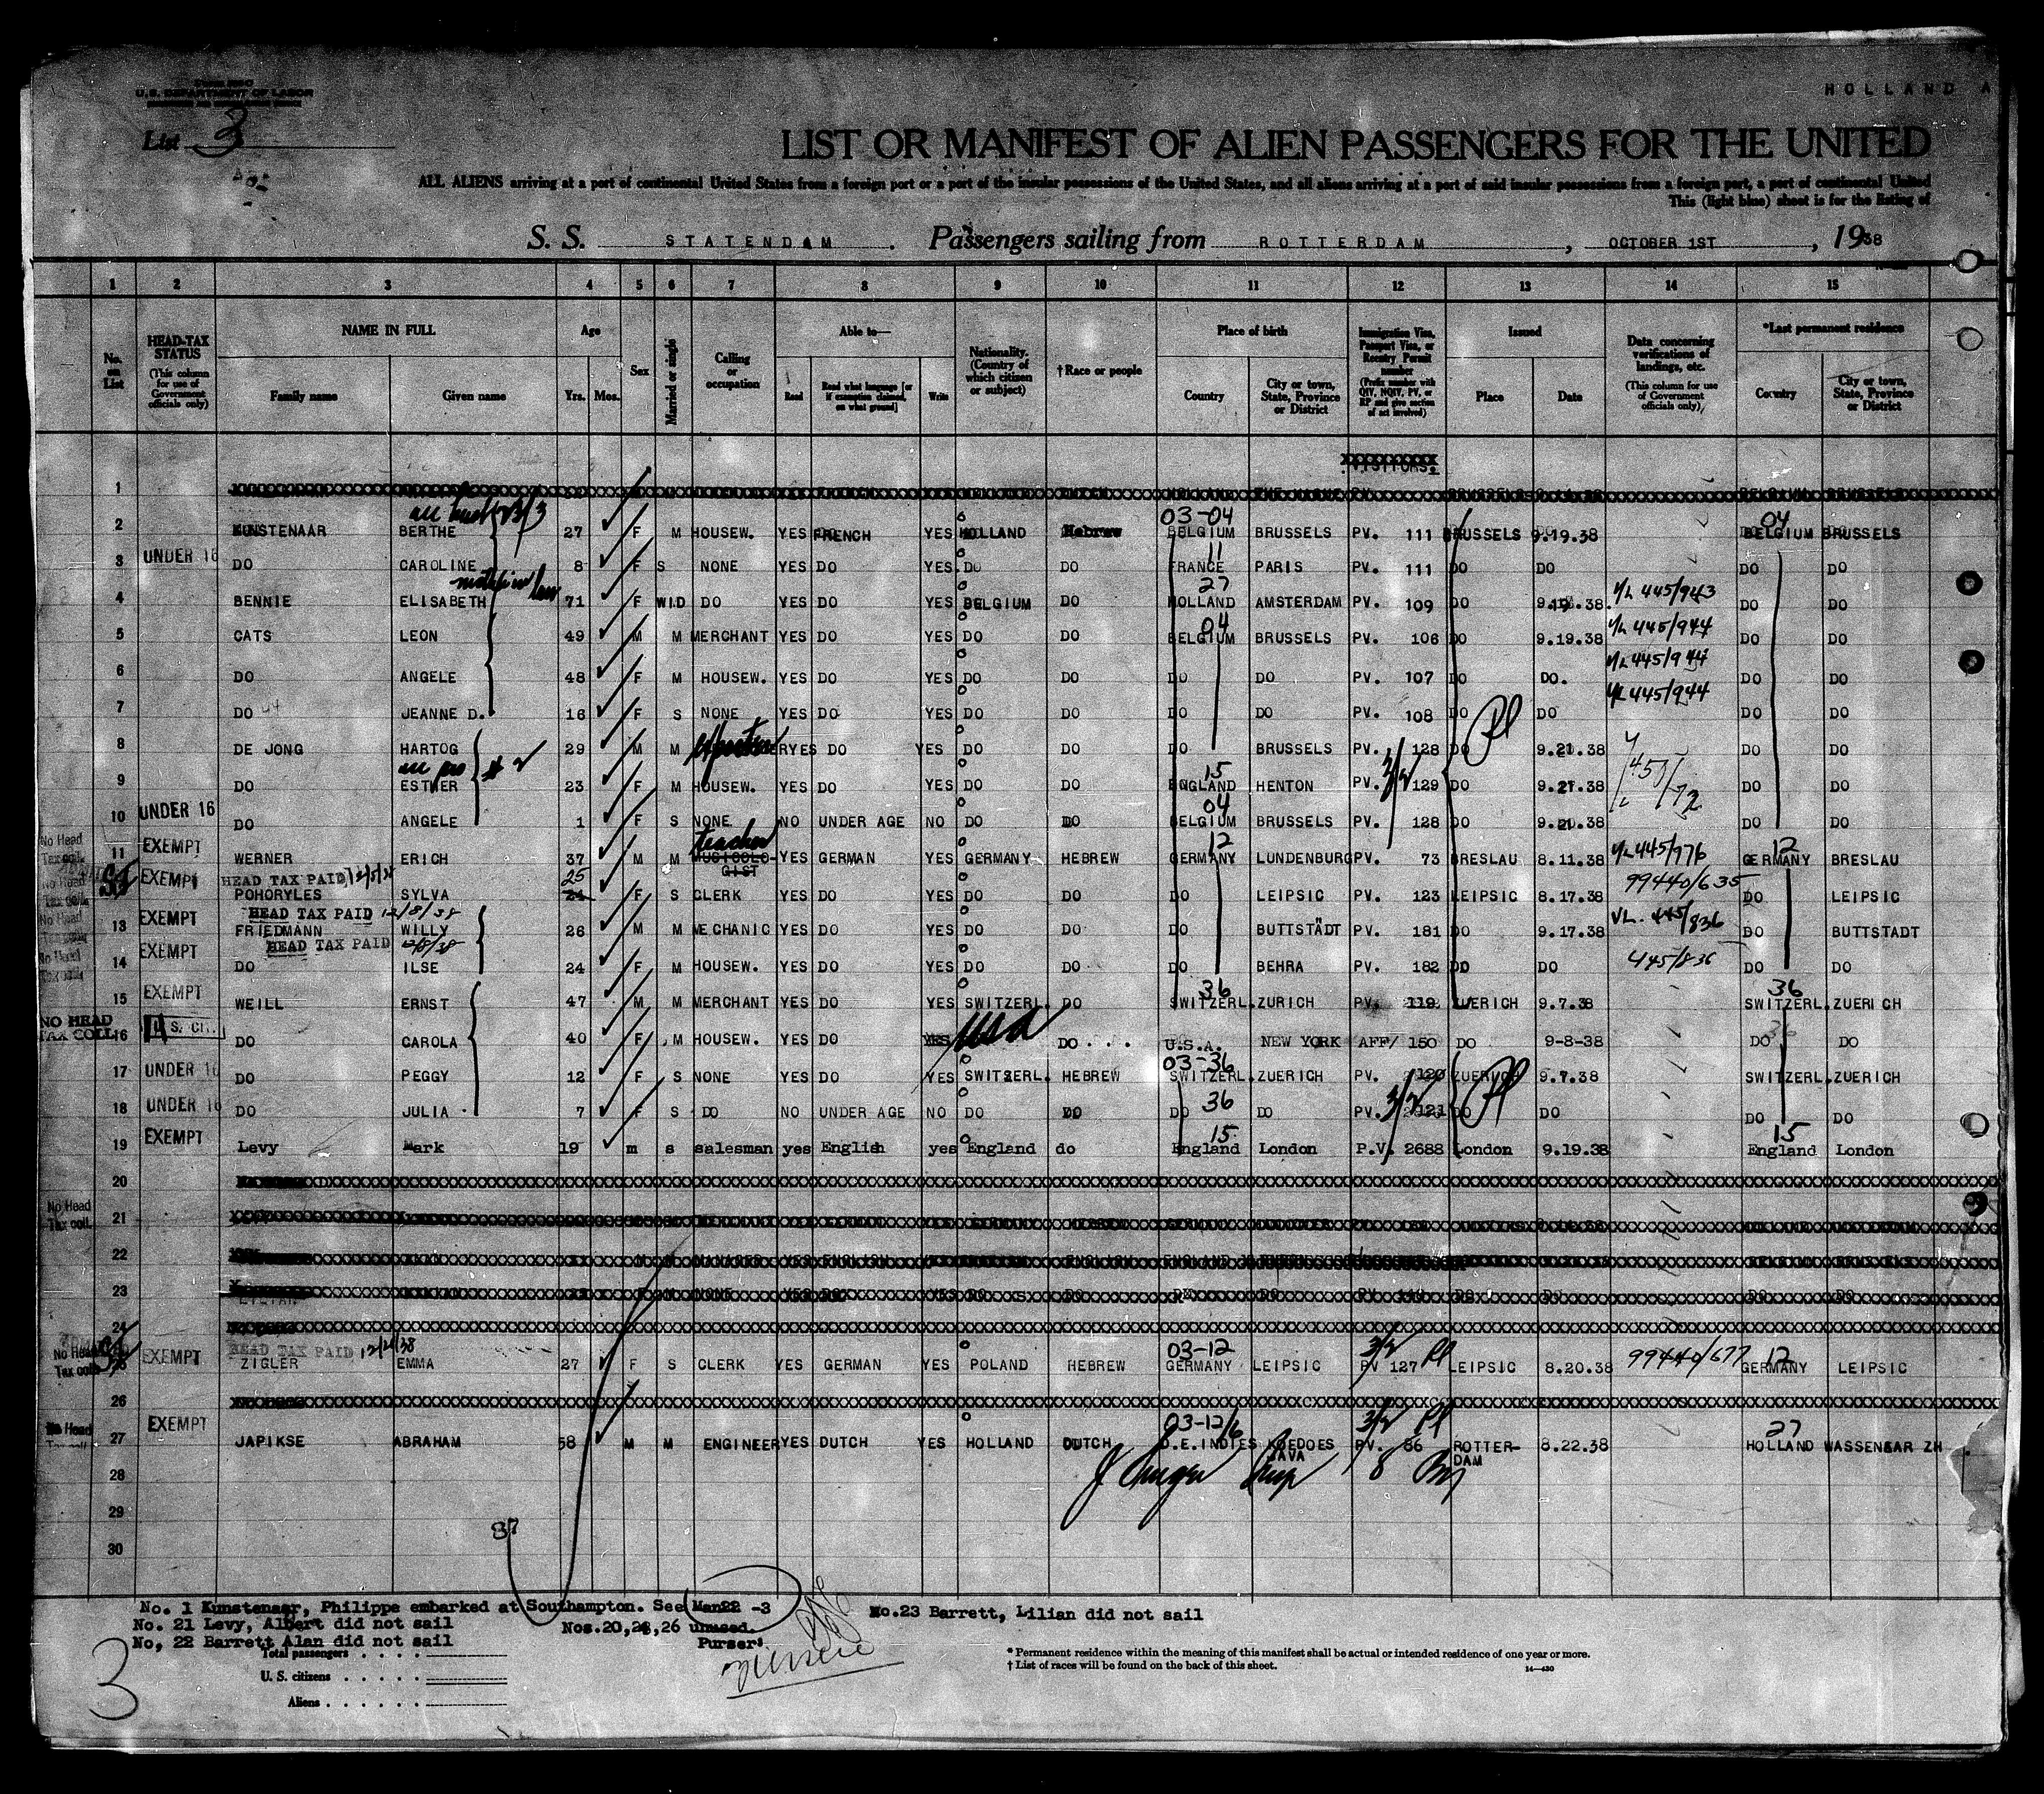 U.S. DEPARTMENT OF LABOR
HOLLAND A
List 3
LIST OR MANIFEST OF ALIEN PASSENGERS FOR THE UNITED
ALL ALIENS arriving at a port of continental United States from a foreign port or a port of the insular possessions of the United States, and all aliens arriving at a port of said insular possessions from a foreign port, a port of continental United
This (light blue) sheet is for the listing of
S. S. STATENDAM. Passengers sailing from ROTTERDAM, OCTOBER 1ST, 1938
1 2 3 4 5 6 7 8 9 10 11 12 13 14 15
No. on List
HEAD-TAX STATUS (This column for use of Government officials only)
NAME IN FULL Family name Given name
Age Yrs. Mos.
Sex
Married or single
Calling or occupation
Able to— Read Read what language [or if exemption claimed, on what ground] Write
Nationality. (Country of which citizen or subject)
†Race or people
Place of birth Country City or town, State, Province or District
Immigration Visa, Passport Visa, or Reentry Permit number (Prefix number with QIV, NQIV, PV, or RP and give section of act involved)
Issued Place Date
Data concerning verifications of landings, etc. (This column for use of Government officials only)
*Last permanent residence Country City or town, State, Province or District
VISITORS.
1
03-04 04
2 KUNSTENAAR BERTHE 27 F M HOUSEW. YES FRENCH YES HOLLAND Hebrew BELGIUM BRUSSELS PV. 111 BRUSSELS 9.19.38 BELGIUM BRUSSELS
11
3 UNDER 16 DO CAROLINE 8 F S NONE YES DO YES DO DO FRANCE PARIS PV. 111 DO DO DO DO
mother in law 27
4 BENNIE ELISABETH 71 F WID DO YES DO YES BELGIUM DO HOLLAND AMSTERDAM PV. 109 DO 9.19.38. V/L 445/943 DO DO
04
5 CATS LEON 49 M M MERCHANT YES DO YES DO DO BELGIUM BRUSSELS PV. 106 DO 9.19.38 V/L 445/944 DO DO
6 DO ANGELE 48 F M HOUSEW. YES DO YES DO DO DO DO PV. 107 DO DO. V/L 445/944 DO DO
7 DO JEANNE D. 16 F S NONE YES DO YES DO DO DO DO PV. 108 DO DO V/L 445/944 DO DO
8 DE JONG HARTOG 29 M M YES DO YES DO DO DO BRUSSELS PV. 128 DO 9.21.38 DO DO
15
9 DO ESTHER 23 F M HOUSEW. YES DO YES DO DO ENGLAND HENTON PV. 3/2 129 DO 9.21.38 DO DO
04
10 UNDER 16 DO ANGELE 1 F S NONE NO UNDER AGE NO DO DO BELGIUM BRUSSELS PV. 128 DO 9.21.38 DO DO
No Head Tax coll. teacher 12 12
11 EXEMPT WERNER ERICH 37 M M MUSICOLOGIST YES GERMAN YES GERMANY HEBREW GERMANY LUNDENBURG PV. 73 BRESLAU 8.11.38 V/L 445/976 GERMANY BRESLAU
HEAD TAX PAID 25
EXEMPT POHORYLES SYLVA 24 F S CLERK YES DO YES DO DO DO LEIPSIC PV. 123 LEIPSIC 8.17.38 99440/635 DO LEIPSIC
HEAD TAX PAID 12/8/38
13 EXEMPT FRIEDMANN WILLY 26 M M MECHANIC YES DO YES DO DO DO BUTTSTÄDT PV. 181 DO 9.17.38 VL. 445/836 DO BUTTSTADT
HEAD TAX PAID 12/8/38
14 EXEMPT DO ILSE 24 F M HOUSEW. YES DO YES DO DO DO BEHRA PV. 182 DO DO 445/836 DO DO
36 36
15 EXEMPT WEILL ERNST 47 M M MERCHANT YES DO YES SWITZERL. DO SWITZERL. ZURICH PV. 119 ZUERICH 9.7.38 SWITZERL. ZUERICH
NO HEAD TAX COLL. U.S. CIT.
16 DO CAROLA 40 F M HOUSEW. YES DO YES USA DO U.S.A. NEW YORK AFF/ 150 DO 9-8-38 DO DO
03-36
17 UNDER 16 DO PEGGY 12 F S NONE YES DO YES SWITZERL. HEBREW SWITZERL. ZUERICH PV. 120 ZUERICH 9.7.38 SWITZERL. ZUERICH
18 UNDER 16 DO JULIA 7 F S DO NO UNDER AGE NO DO DO DO 36 DO PV. 3/2 121 DO DO DO DO
15 15
19 EXEMPT Levy Mark 19 m s salesman yes English yes England do England London P.V. 2688 London 9.19.38 England London
20
No Head Tax coll.
21
22
23
24
HEAD TAX PAID 12/21/38 03-12 3/2 12
No Head Tax coll. EXEMPT ZIGLER EMMA 27 F S CLERK YES GERMAN YES POLAND HEBREW GERMANY LEIPSIC PV 127 LEIPSIC 8.20.38 99440/677 GERMANY LEIPSIC
26
03-12/6 3/2 27
27 EXEMPT JAPIKSE ABRAHAM 58 M M ENGINEER YES DUTCH YES HOLLAND DUTCH D.E.INDIES KOEDOES JAVA PV. 86 ROTTERDAM 8.22.38 HOLLAND WASSENAAR ZH
28
29
30
37
No. 1 Kunstenaar, Philippe embarked at Southampton. See Man22 -3
No.23 Barrett, Lilian did not sail
No. 21 Levy, Albert did not sail
Nos.20,24,26 unused.
No, 22 Barrett Alan did not sail
Purser:
Total passengers
U. S. citizens
Aliens
* Permanent residence within the meaning of this manifest shall be actual or intended residence of one year or more.
† List of races will be found on the back of this sheet.
14—430
3